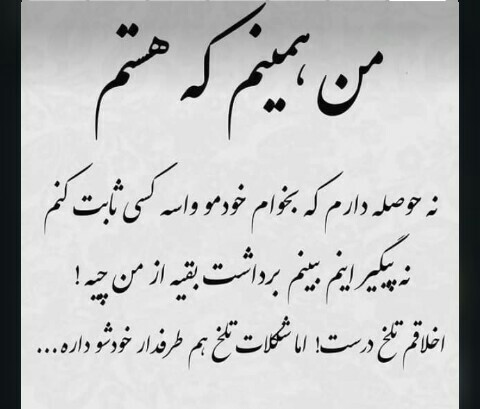 من همینم که هستم
نه حوصله دارم که بخوام خودمو واسه کسی ثابت کنم
نه پیگیر اینم ببینم برداشت بقیه از من چیه !
اخلاقم تلخ درست! اما شکلات تلخ هم طرفدار خودشو داره...